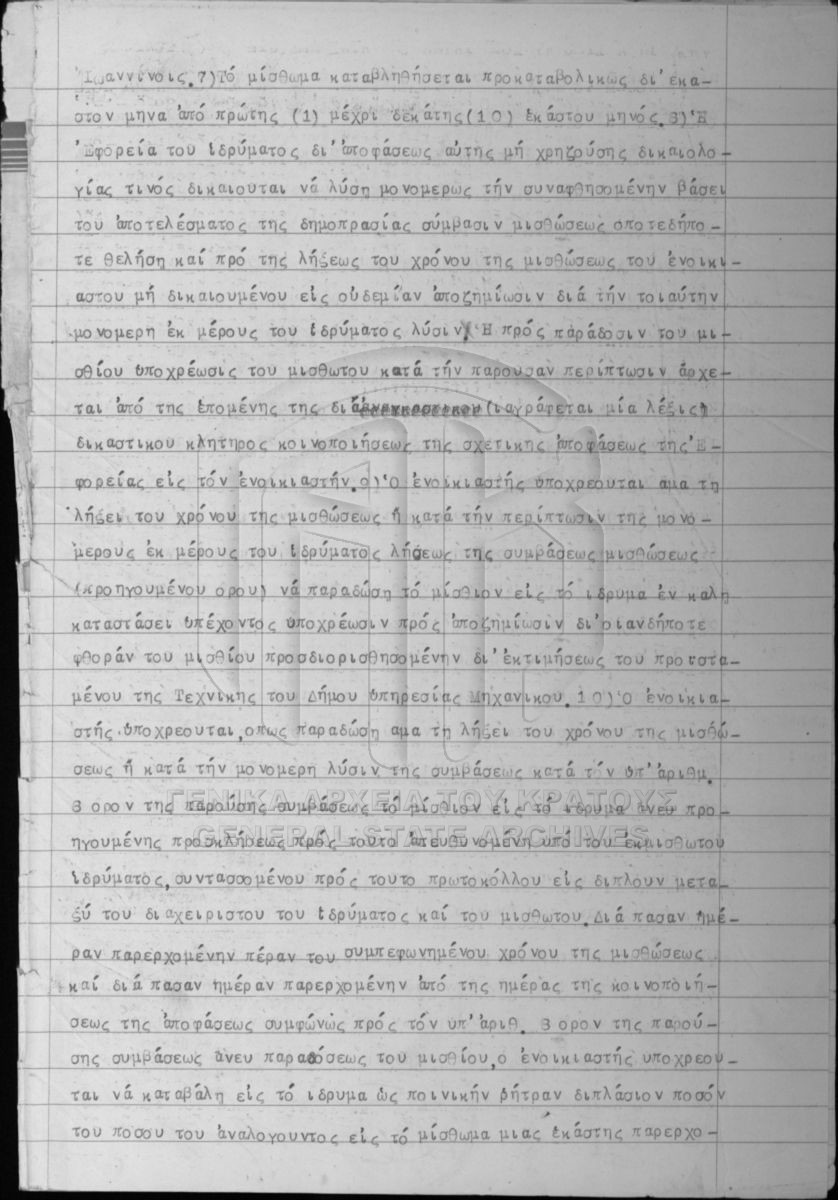 Ἰωαννίνοις.7)Τό μίσθωμα καταβληθήσεται προκαταβολικως δι'ἑκα-
στον μηνα ἀπό πρώτης (1) μέχρι δεκάτης(10) ἑκάστου μηνός.8)Ἡ
Ἐφορεία του ἱδρύματος δι'ἀποφάσεως αὐτης μή χρηζούσης δικαιολο-
γίας τινός δικαιουται νά λύση μονομερως τήν συναφθησομένην βάσει
του ἀποτελέσματος της δημοπρασίας σύμβασιν μισθώσεως οποτεδήπο-
τε θελήση καί πρό της λήξεως του χρόνου της μισθώσεως του ἐνοικι-
αστου μή δικαιουμένου εἰς οὐδεμίαν ἀποζημίωσιν διά τήν τοιαύτην
μονομερη ἐκ μέρους του ἱδρύματος λύσιν. Ἡ πρός παράδοσιν του μι-
σθίου ὑποχρέωσις του μισθωτου κατά τήν παρουσαν περίπτωσιν ἄρχε-
ται ἀπό της ἑπομένης της διά (ιαγράφεται μία λέξις)
δικαστικου κλητηρος κοινοποιήσεως της σχετικης ἀποφάσεως της Ἐ-
φορείας εἰς τόν ἐνοικιαστήν.9)Ὁ ἐνοικιαστής ὑποχρεουται αμα τη
λήξει του χρόνου της μισθώσεως ἤ κατά τήν περίπτωσιν της μονο-
μερους ἐκ μέρους του ἱδρύματος λήσεως της συμβάσεως μισθώσεως
(προηγουμένου ορου) νά παραδώση τό μίσθιον εἰς τό ιδρυμα ἐν καλη
καταστάσει ὑπέχοντος ὑποχρέωσιν πρός ἀποζημίωσιν δι'οιανδήποτε
φθοράν του μισθίου προσδιορισθησομένην δι'ἐκτιμήσεως του προιστα-
μένου της Τεχνικης του Δήμου ὑπηρεσίας Μηχανικου.10)Ὁ ἐνοικια-
στής ὑποχρεουται,οπως παραδώση αμα τη λήξει του χρόνου της μισθώ-
σεως ἤ κατά τήν μονομερη λύσιν της συμβάσεως κατά τόν ὑπ'ἀριθμ.
8 ορον της παρούσης συμβάσεως τό μίσθιον εἰς τό ιδρυμα ἄνευ προ-
ηγουμένης προσκλήσεως πρός τουτο ἀπευθυνομένη ὑπό του ἐκμισθωτου
ἱδρύματος,συντασσομένου πρός τουτο πρωτοκόλλου εἰς διπλουν μετα-
ξύ του διαχειριστου του ἱδρύματος καί του μισθωτου.Διά πασαν ἡμέ-
ραν παρερχομένην πέραν του συμπεφωνημένου χρόνου της μισθώσεως
καί διά πασαν ἡμέραν παρερχομένην ἀπό της ἡμέρας της κοινοποιή-
σεως της ἀποφάσεως συμφώνως πρός τόν ὑπ'ἀριθ. 8 ορον της παρού-
σης συμβάσεως ἄνευ παραδόσεως του μισθίου,ο ἐνοικιαστής ὑποχρεου-
ται νά καταβάλη εἰς τό ιδρυμα ὡς ποινικήν ῥήτραν διπλάσιον ποσόν
του ποσου του ἀναλογουντος εἰς τό μίσθωμα μιας ἑκάστης παρερχο-
ΓΕΝΙΚΑ ΑΡΧΕΙΑ ΤΟΥ ΚΡΑΤΟΥΣ
GENERAL STATE ARCHIVES